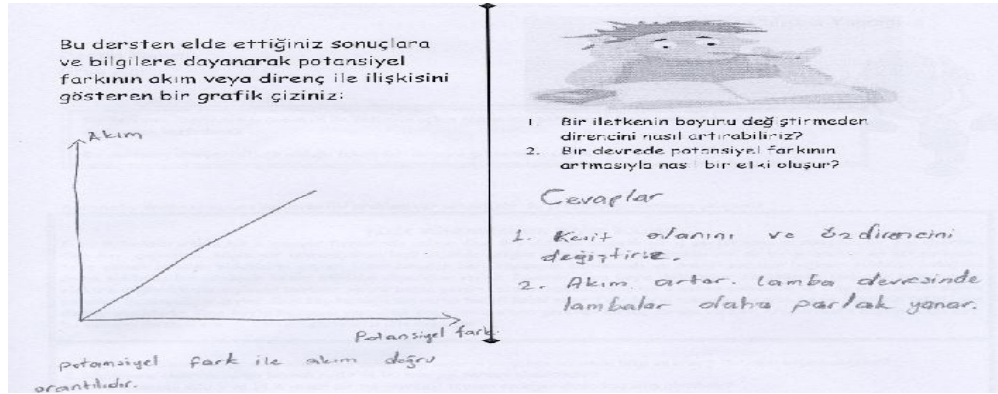 Bu dersten elde ettiğiniz sonuçlara
ve bilgilere dayanarak potansiyel
farkının akım veya direnç ile ilişkisini
gösteren bir grafik çiziniz:
Akım
Potansiyel fark
potansiyel fark ile akım doğru
orantılıdır.
1. Bir iletkenin boyunu değ ştirmeden
direncini nasıl artırabiliriz?
2. Bir devrede potansiyel farkının
artmasıyla nas bir etki oluşur?
Cevaplar
1. Kesit alanını ve özdirencini
değiştiriz.
2. Akım artar. lamba devresinde
lambalar daha parlak yanar.